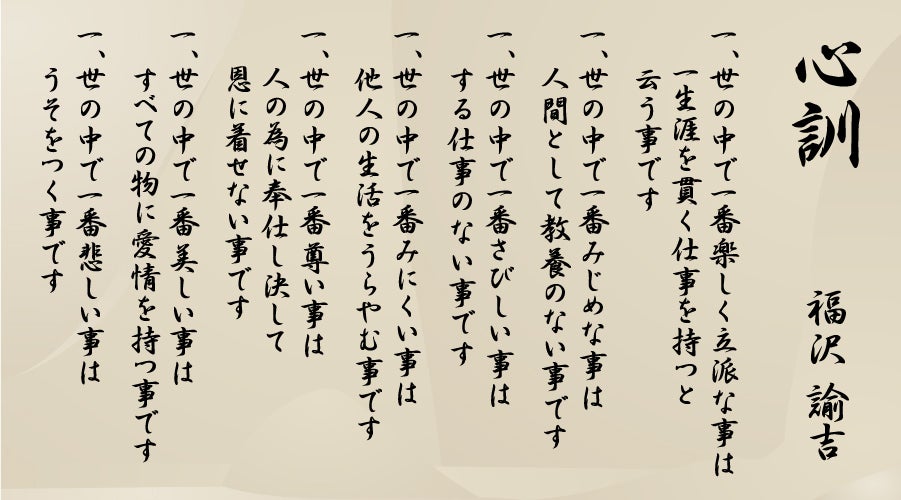 心訓
福沢 諭吉
一、世の中で一番楽しく立派な事は
一生涯を貫く仕事を持つと
云う事です
一、世の中で一番みじめな事は
人間として教養のない事です
一、世の中で一番さびしい事は
する仕事のない事です
一、世の中で一番みにくい事は
他人の生活をうらやむ事です
一、世の中で一番尊い事は
人の為に奉仕し決して
恩に着せない事です
一、世の中で一番美しい事は
すべての物に愛情を持つ事です
一、世の中で一番悲しい事は
うそをつく事です